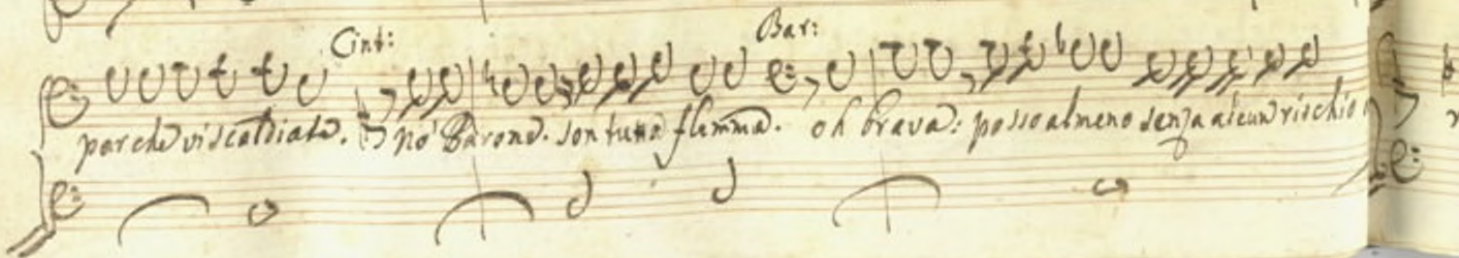 Cint: Bar:
par che vi scaldiate. no' Barone. son tutta flemma. oh brava: posso almeno senza alcun rischio